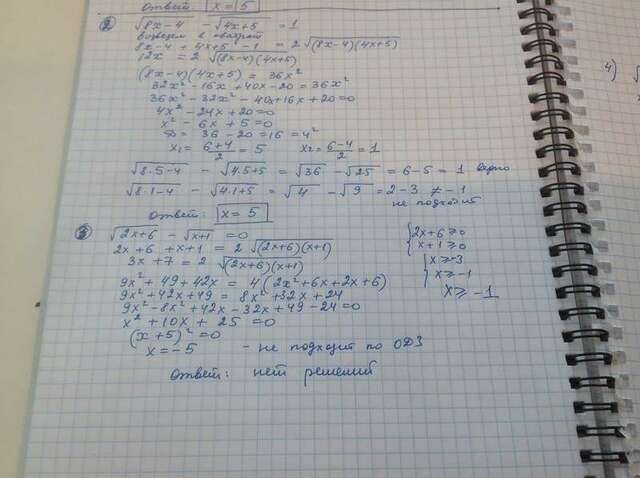 Ответ: x = 5
② √(8x-4) - √(4x+5) = 1
возведем в квадрат
8x-4 + 4x+5 -1 = 2√((8x-4)(4x+5))
12x = 2√((8x-4)(4x+5))
(8x-4)(4x+5) = 36x²
32x² -16x +40x -20 = 36x²
36x² - 32x² - 40x+16x+20=0
4x² -24x +20=0
x² - 6x + 5 =0
D = 36-20 =16 = 4²
x₁ = (6+4)/2 = 5 x₂ = (6-4)/2 = 1
√(8·5-4) - √(4·5+5) = √36 - √25 = 6-5 = 1 верно
√(8·1-4) - √(4·1+5) = √4 - √9 = 2-3 ≠ -1
не подходит
Ответ: x = 5
③ √(2x+6) - √(x+1) =0
2x+6 + x+1 = 2√((2x+6)(x+1))
3x +7 = 2√((2x+6)(x+1))
9x² + 49 +42x = 4(2x²+6x+2x+6)
9x² +42x+49 = 8x² +32x +24
9x² -8x² +42x -32x +49 -24=0
x² +10x + 25 =0
(x+5)² =0
x = -5 - не подходит по ОДЗ
Ответ: нет решений
{2x+6 ≥0
x+1 ≥0
{x ≥ -3
x ≥ -1
x ≥ -1
4)